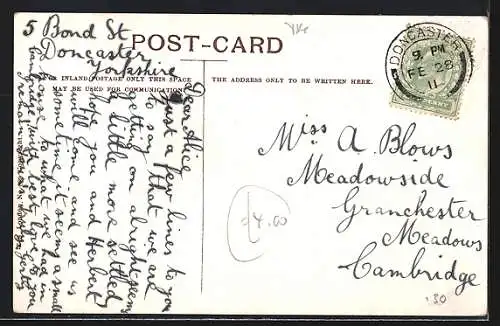 5 Bond St
Doncaster
Yorkshire
Yks
POST-CARD
INLAND POSTAGE ONLY THIS SPACE
MAY BE USED FOR COMMUNICATION.
THE ADDRESS ONLY TO BE WRITTEN HERE.
DONCASTER
9 PM
FE 28
11
Dear Alice
Just a few lines to you
to say that we are
getting on alright seems
a little more settled
hope you and Herbert
will come and see us
sometime it seems a small
house to what we had in
best love to you
Miss A. Blows
Meadowside
Granchester
Meadows
Cambridge
4.00